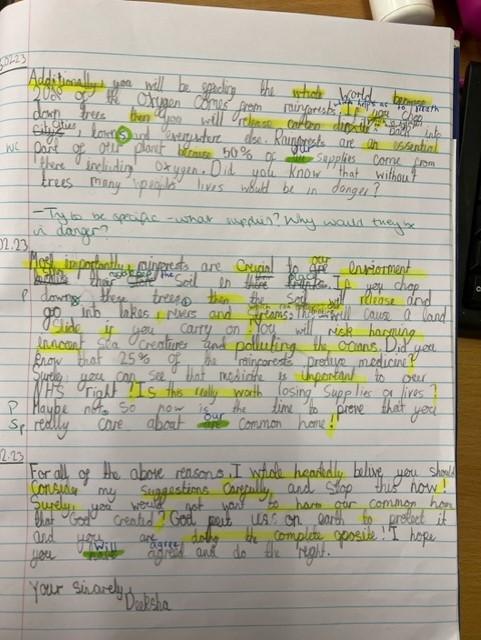 02.23
Additionally, you will be the whole World because
20% of the Oxygen comes from rainforests. If you chop
which helps us to breath
down trees then you will release carbon dioxide back into
cities towns and everywhere else. Rainforests are an essential
WC
part of our planet because 50% of our supplies come from
there including oxygen. Did you know that without
trees many people lives would be in danger?
- Try to be specific - what supplies? Why would they be
in danger?
02.23
Most importantly, rainforests are crucial to our enviorment
their soil in place. If you chop
P
down these trees, then the soil will release and
go into lakes, rivers and streams. This will cause a land
slide if you carry on! You will risk harming
innocent sea creatures and polluting the oceans. Did you
know that 25% of the rainforests produce medicine?
Surely you can see that medicine is important to our
NHS right! Is this really worth losing supplies or lives?
P
Maybe not. So now is the time to prove that you
Sp
really care about our common home!
02.23
For all of the above reasons, I whole heartedly belive you should
Consider my suggestions carefully, and stop this now!
Surely, you would not want to harm our common home
that God created? God put us on earth to protect it
and you are doing the complete oposite! I hope
will agree
you agreed and do the right.
Your sincarely,
Deeksha